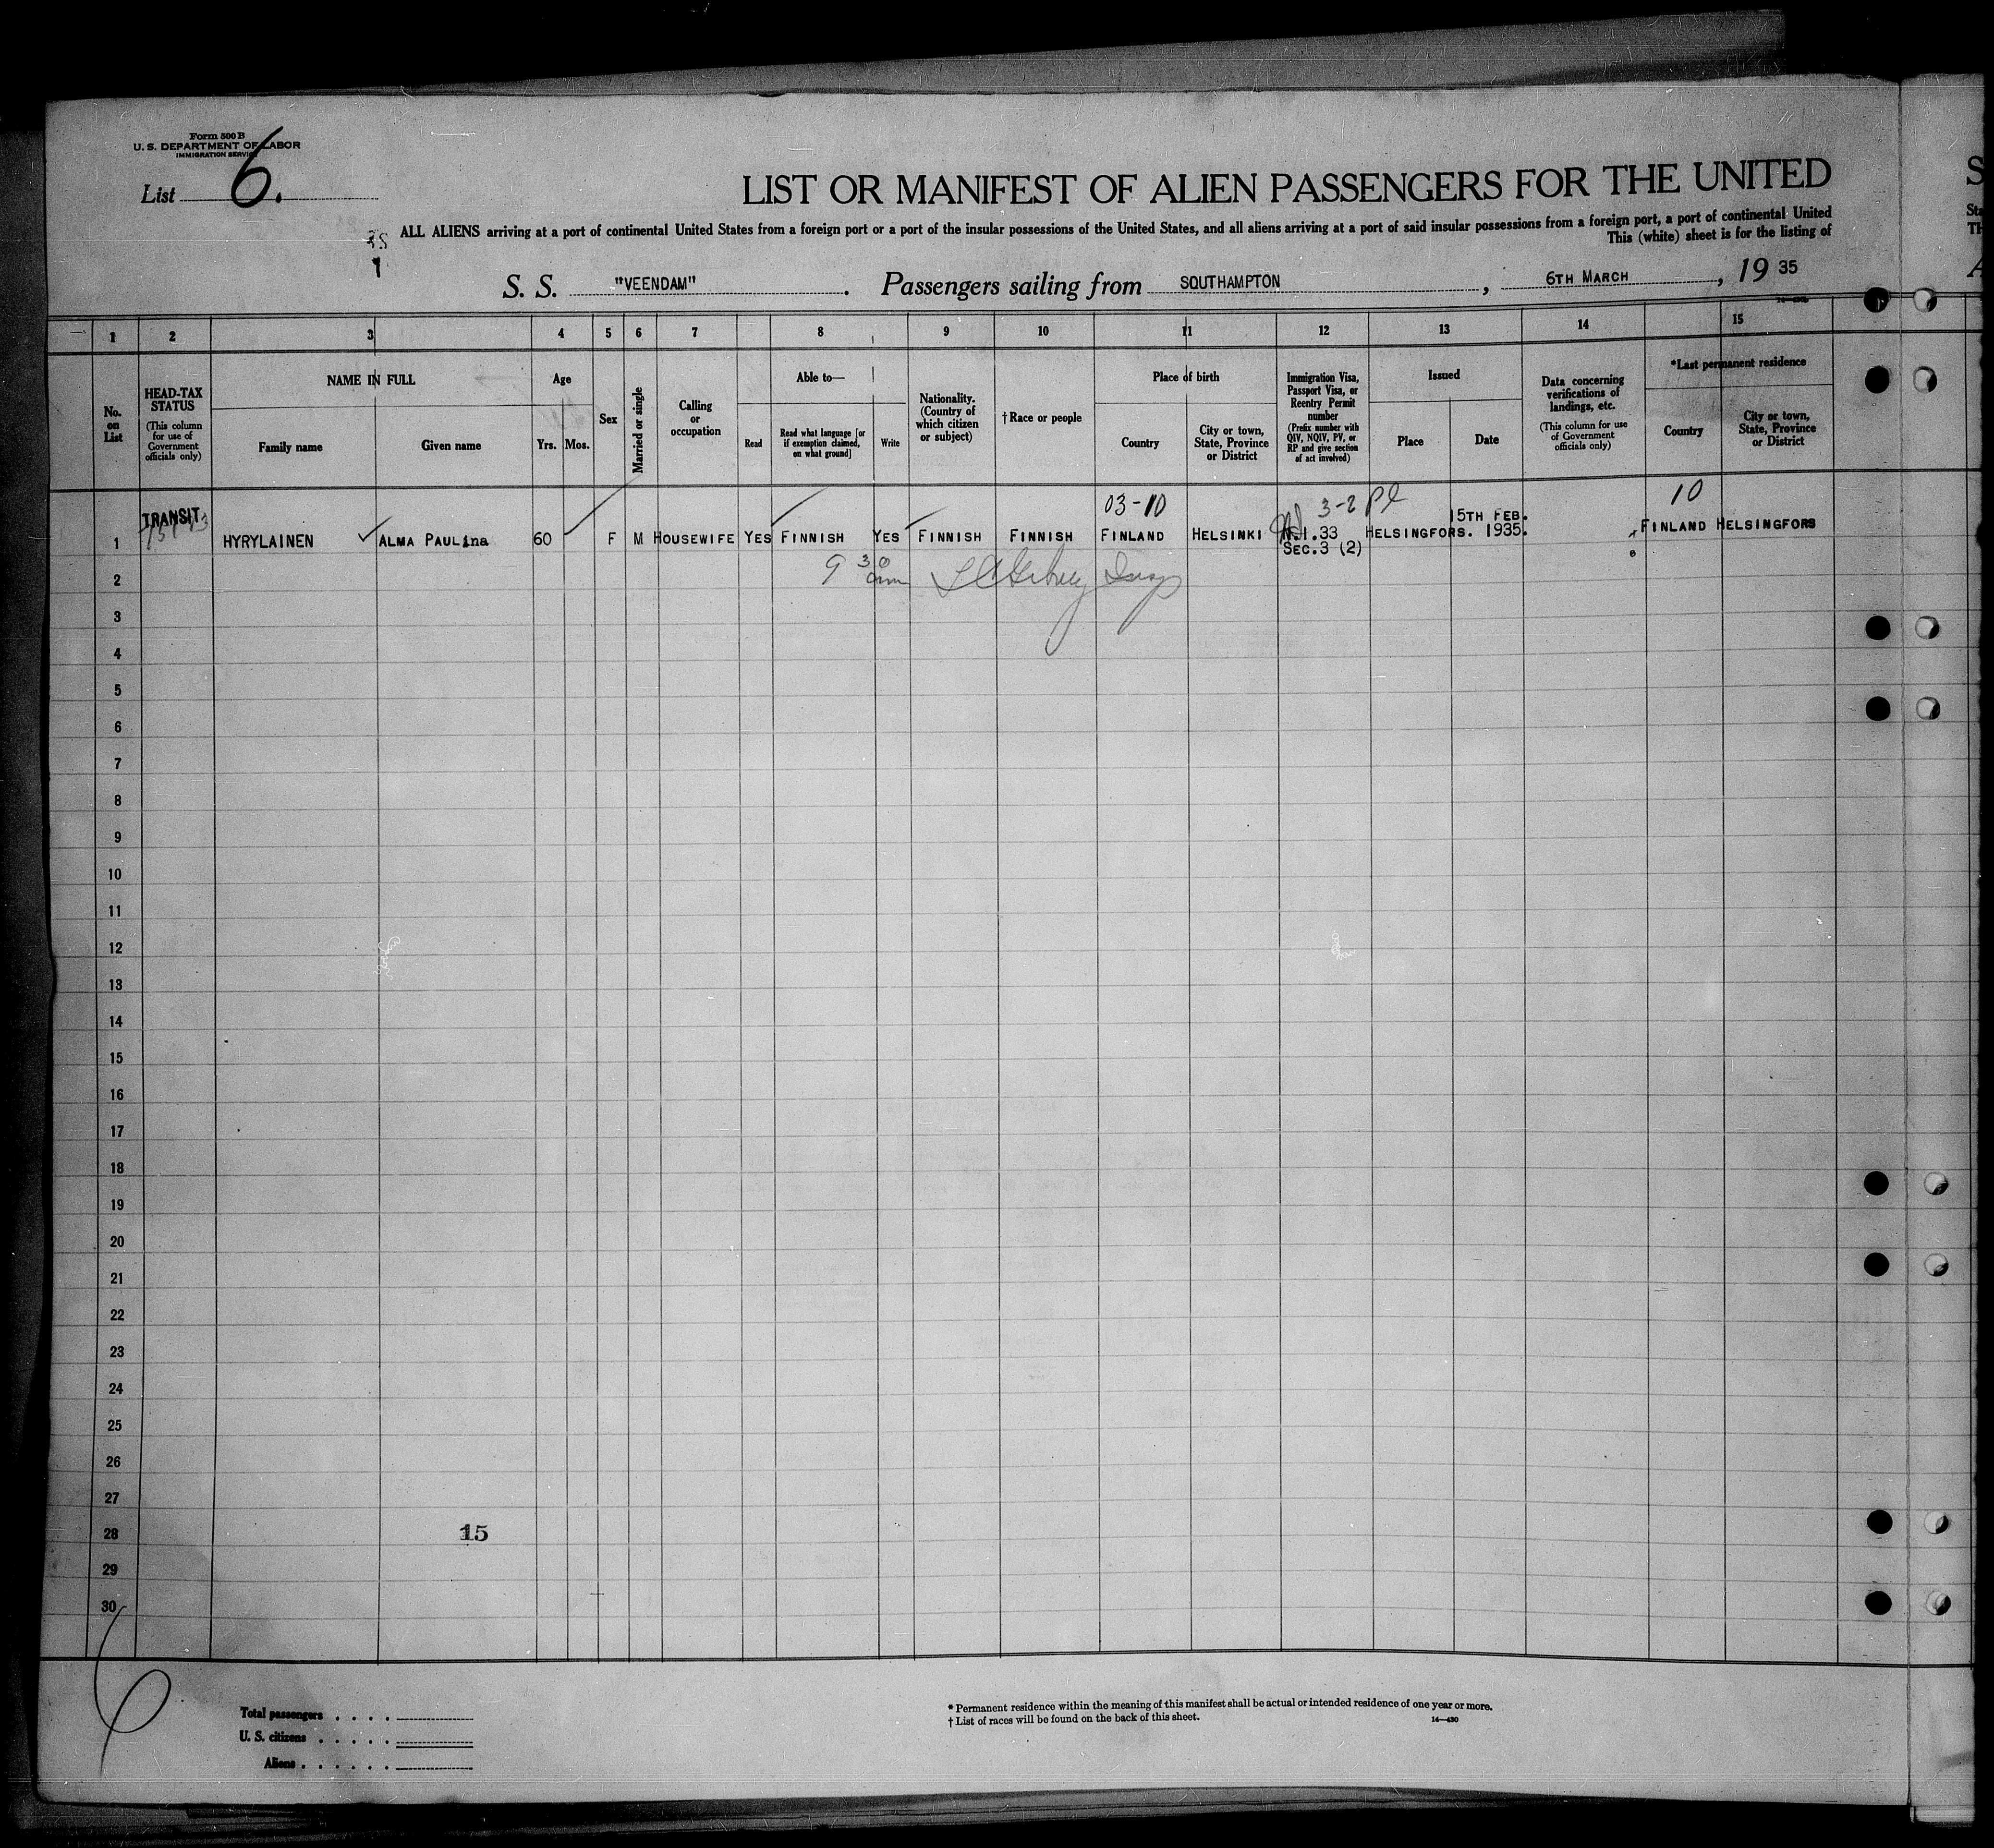 Form 500 B
U. S. DEPARTMENT OF LABOR
IMMIGRATION SERVICE
List 6.
LIST OR MANIFEST OF ALIEN PASSENGERS FOR THE UNITED
ALL ALIENS arriving at a port of continental United States from a foreign port or a port of the insular possessions of the United States, and all aliens arriving at a port of said insular possessions from a foreign port, a port of continental United
This (white) sheet is for the listing of
S. S. "VEENDAM". Passengers sailing from SOUTHAMPTON, 6TH MARCH, 19 35
1 2 3 4 5 6 7 8 9 10 11 12 13 14 15
No. on List
HEAD-TAX STATUS
(This column for use of Government officials only)
NAME IN FULL
Family name
Given name
Age
Yrs. Mos.
Sex
Married or single
Calling or occupation
Able to—
Read
Read what language [or if exemption claimed, on what ground]
Write
Nationality. (Country of which citizen or subject)
†Race or people
Place of birth
Country
City or town, State, Province or District
Immigration Visa, Passport Visa, or Reentry Permit number
(Prefix number with QIV, NQIV, PV, or RP and give section of act involved)
Issued
Place
Date
Data concerning verifications of landings, etc.
(This column for use of Government officials only)
*Last permanent residence
Country
City or town, State, Province or District
03-10 3-2 10
TRANSIT 15TH FEB.
1 HYRYLAINEN ALMA PAULINA 60 F M HOUSEWIFE YES FINNISH YES FINNISH FINNISH FINLAND HELSINKI 33 HELSINGFORS. 1935. FINLAND HELSINGFORS
SEC.3 (2)
2 9 30 am
3
4
5
6
7
8
9
10
11
12
13
14
15
16
17
18
19
20
21
22
23
24
25
26
27
28 15
29
30
Total passengers . . . .
U. S. citizens . . . . .
Aliens . . . . . .
* Permanent residence within the meaning of this manifest shall be actual or intended residence of one year or more.
† List of races will be found on the back of this sheet.
14—430